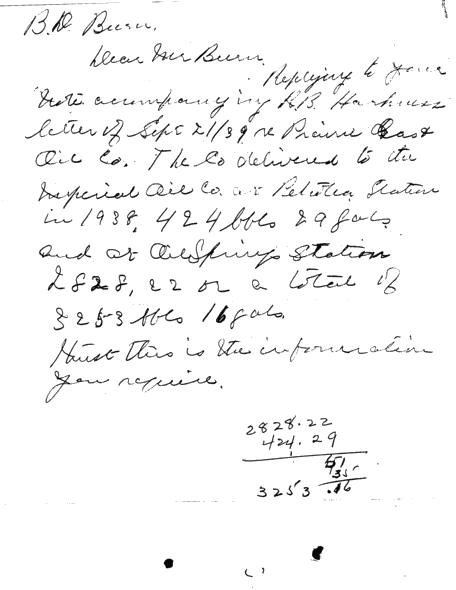 B.D. Burn.
Dear Mr Burn.
Replying to your
Note acompanying R.B. Harkness
letter of Sept 21/39 re Prairie East
Oil Co. The Co delivered to the
Imperial Oil Co. at Petrolea Station
in 1938, 424 bbls 29 gals
and at OilSprings Station
2828, 22 or a total of
3253 bbls 16 gals.
I trust this is the information
you require.
2828.22
424.29
51
35
3253 .16